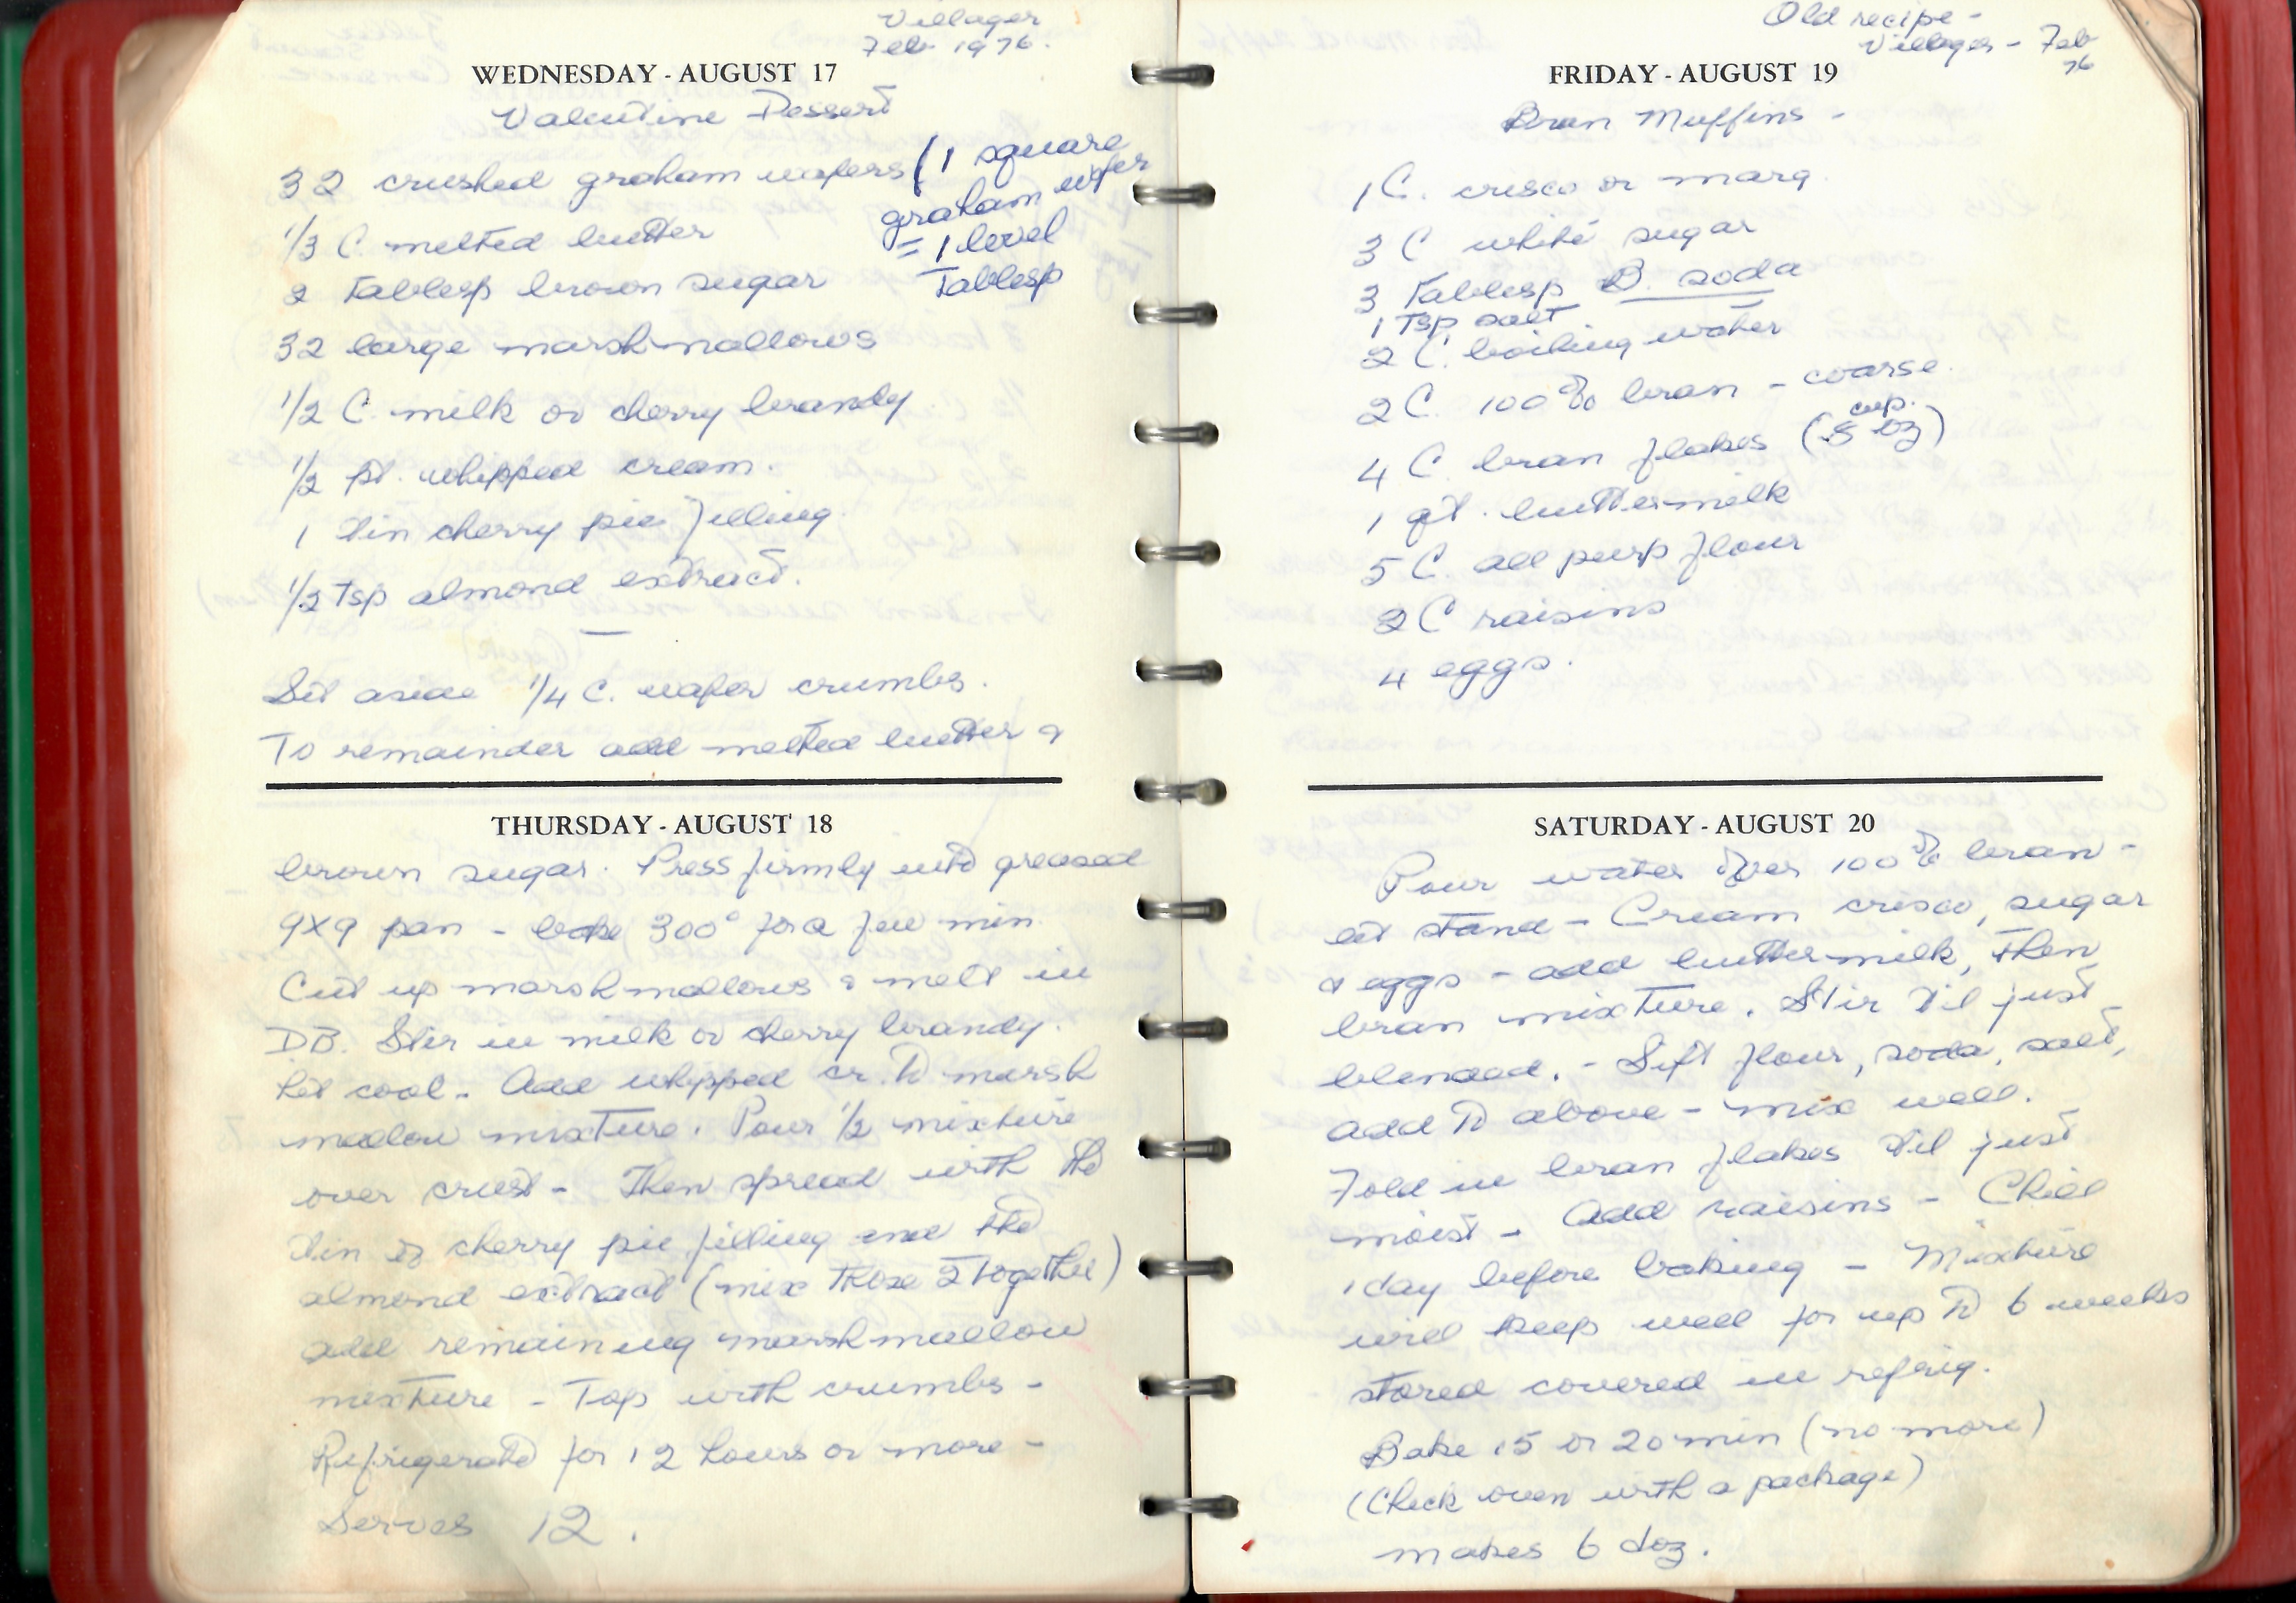 Villager
Feb 1976.
WEDNESDAY - AUGUST 17
Valentine Dessert
32 crushed graham wafers (1 square
graham wafer
= 1 level
Tablesp
1/3 C. melted butter
2 Tablesp brown sugar
32 large marshmallows
1/2 C. milk or cherry brandy
1/2 pt. whipped cream.
1 tin cherry pie filling.
1/2 Tsp almond extract.
—
Set aside 1/4 C. wafer crumbs.
To remainder add melted butter &
THURSDAY - AUGUST 18
brown sugar. Press firmly into greased
9x9 pan - bake 300° for a few min
Cut up marshmallows & melt in
DB. Stir in milk or cherry brandy.
Let cool - Add whipped cr. to marsh
mallow mixture. Pour 1/2 mixture
over crust - Then spread with the
tin of cherry pie filling and the
almond extract (mix those 2 together)
add remaining marshmallow
mixture - Top with crumbs -
Refrigerate for 12 hours or more -
Serves 12.
Old recipe -
Villager - Feb
76
FRIDAY - AUGUST 19
Bran Muffins -
1 C. crisco or marg.
3 C white sugar
3 Tablesp B. soda
1 Tsp salt
2 C. boiling water
2 C. 100% bran - coarse.
4 C. bran flakes (8 oz) cup.
1 qt. buttermilk
5 C. all purp flour
2 C raisins
4 eggs.
SATURDAY - AUGUST 20
Pour water over 100% bran -
let stand - Cream crisco, sugar
& eggs - add buttermilk, then
bran mixture. Stir til just
blended. - Sift flour, soda, salt,
add to above - mix well.
Fold in bran flakes til just
moist - Add raisins - Chill
1 day before baking - Mixture
will keep well for up to 6 weeks
stored covered in refrig.
Bake 15 or 20 min (no more)
(Check oven with a package)
makes 6 doz.